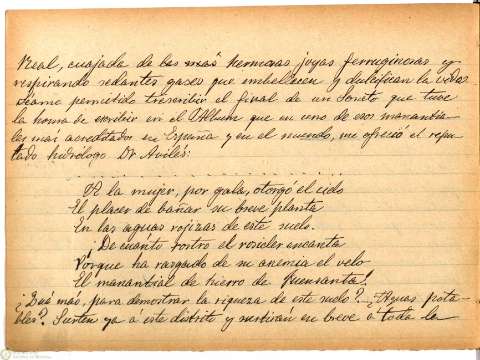 Real, cuajada de las más hermosas joyas ferruginosas y
respirando sedantes gases que embellecen y dulcifican la vida
séame permitido trascribir el final de un Soneto que tuve
la honra de escribir en el Album que en uno de esos manantia-
les mas acreditados en España y en el mundo, me ofreció el repu-
tado hidrólogo Dr Avilés:
A la mujer, por gala, otorgó el cielo
El placer de bañar su breve planta
En las aguas rojizas de este suelo.
¡De cuánto rostro el rosicler encanta
Porque ha rasgado de su anemia el velo
El manantial de hierro de Fuensanta!
¿Qué más, para demostrar la riqueza de este suelo? ¿Aguas pota-
bles? Surten ya á este distrito y surtirán en breve á toda la